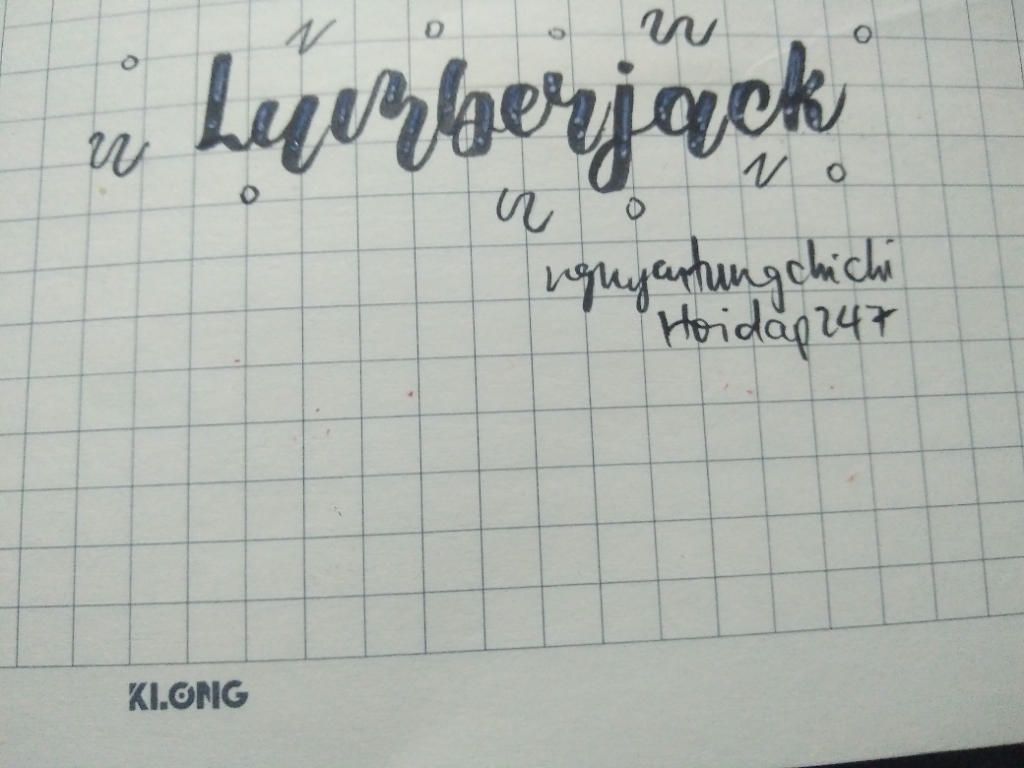 Lumberjack
nguyentungchichi
Hoidap247
KLONG